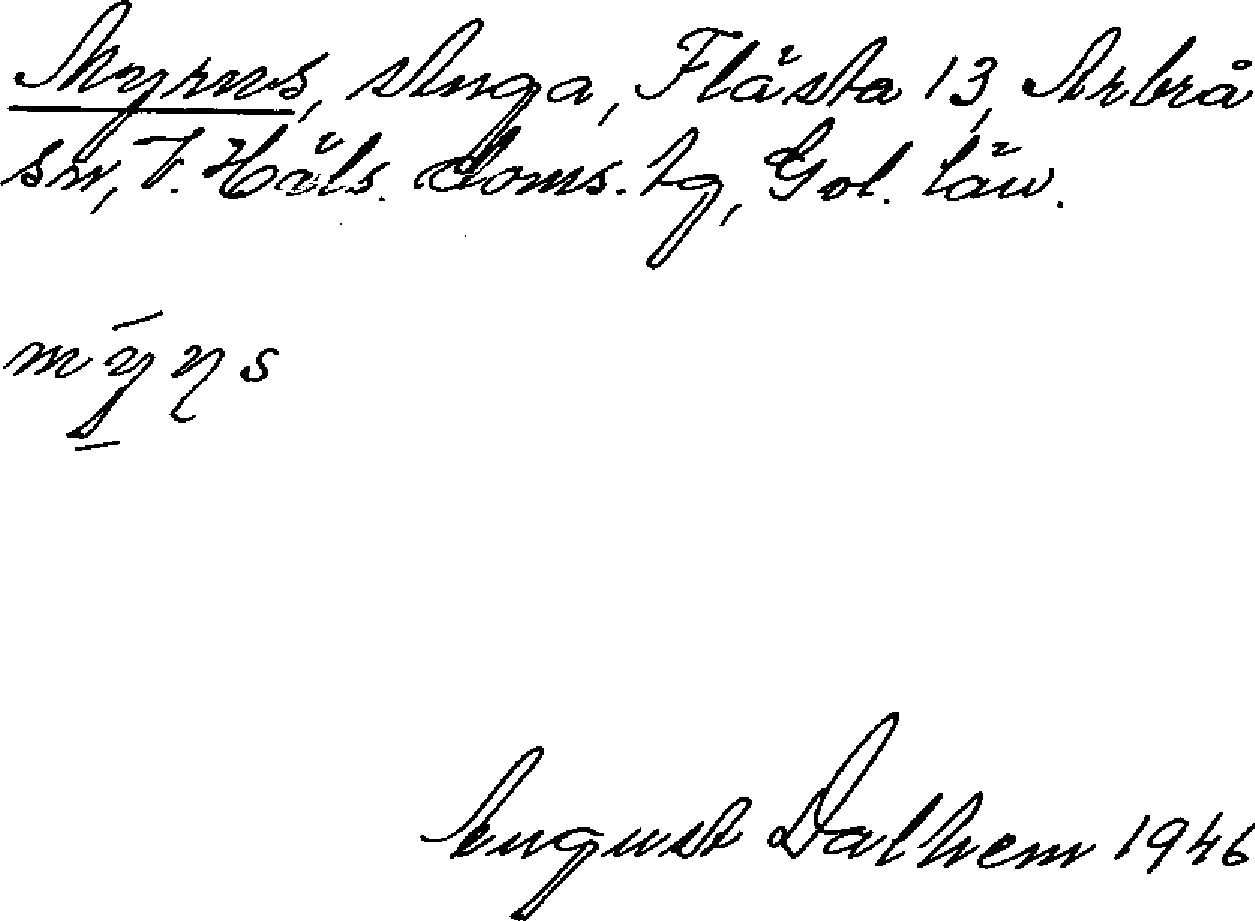 Myrns, stuga, Flästa 13, Arbrå
sn, V. Häls. doms. tg, Gvl. län.
mȳ̠ɳs
August Dalhem 1946